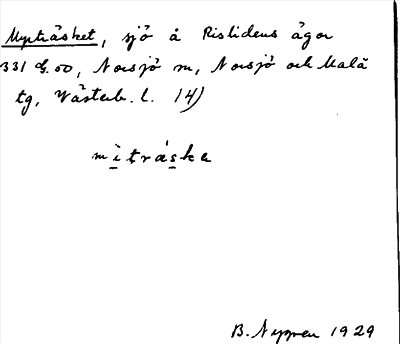 Myrträsket, sjö å Rislidens ägor
331 G.00, Norsjö sn, Norsjö och Malå
tg, Västerb. l. 14)
mìträske
B. Nygren 1929